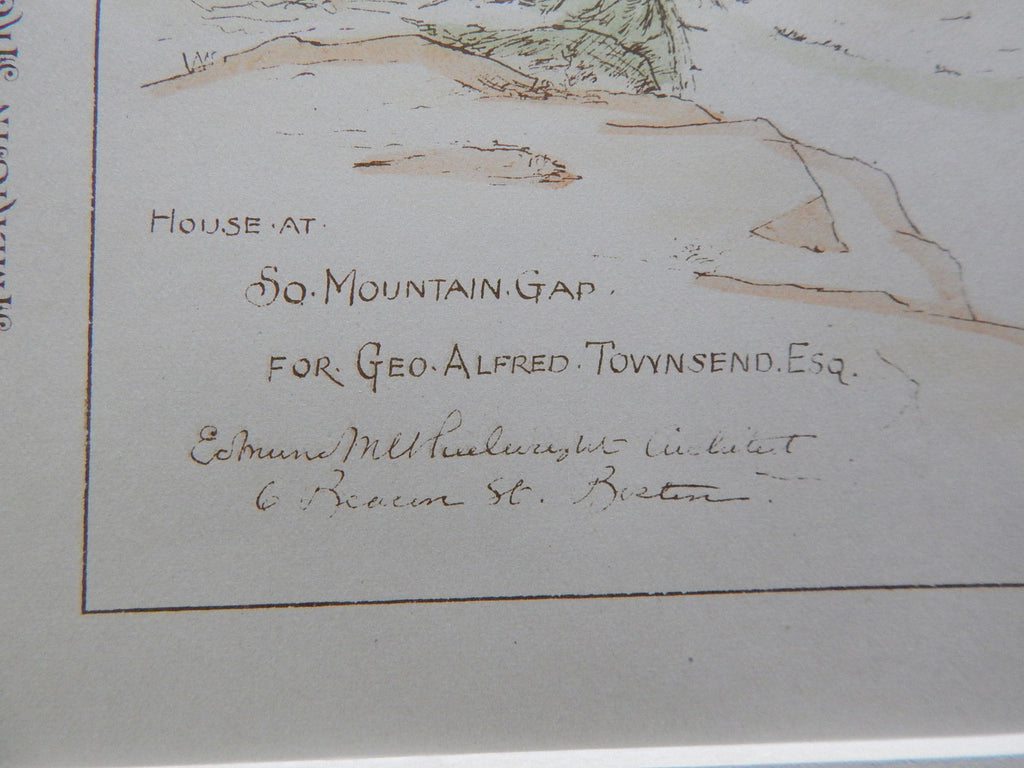 HOUSE · AT ·
SO. MOUNTAIN. GAP.
FOR. GEO. ALFRED. TOWNSEND. ESQ.
Edmund M Wheelwright Architect
6 Beacon St. Boston